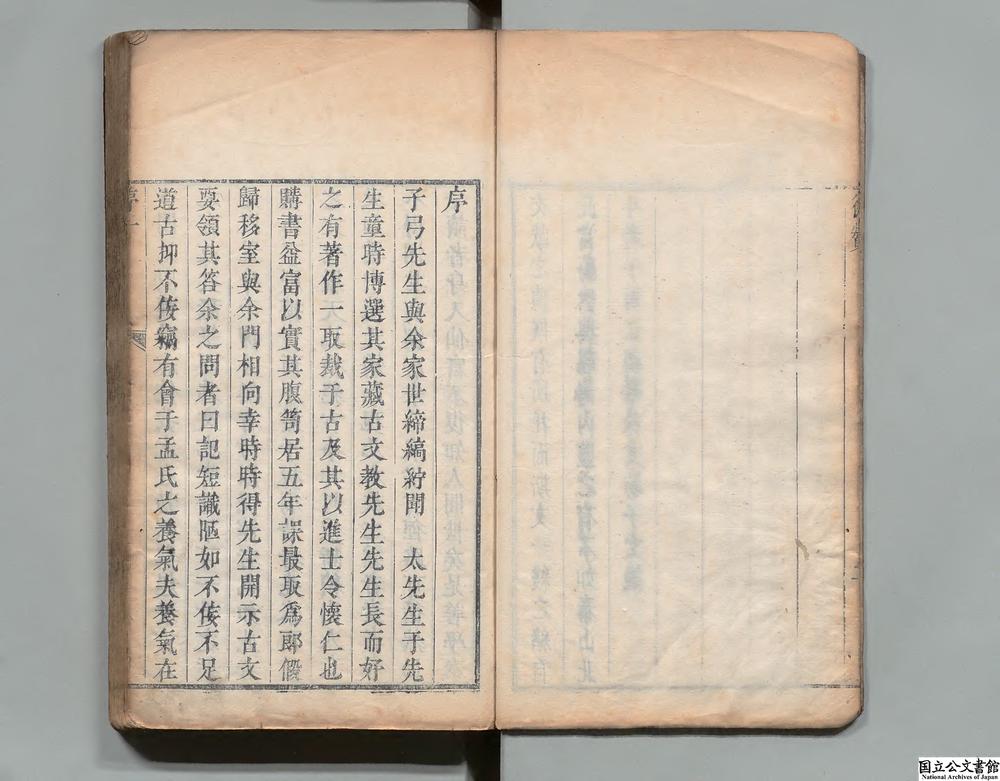 序
子弓先生與余家世締縞紵聞　太先生于先
生童時博選其家藏古文教先生先生長而好
之有著作一取裁于古及其以進士令懷仁也
購書益富以實其腹笥居五年課最取爲郎假
歸移室與余門相向幸時時得先生開示古文
要領其答余之問者曰記短識陋如不佞不足
道古抑不佞竊有會于孟氏之養氣夫養氣在
序 一
国立公文書館
National Archives of Japan